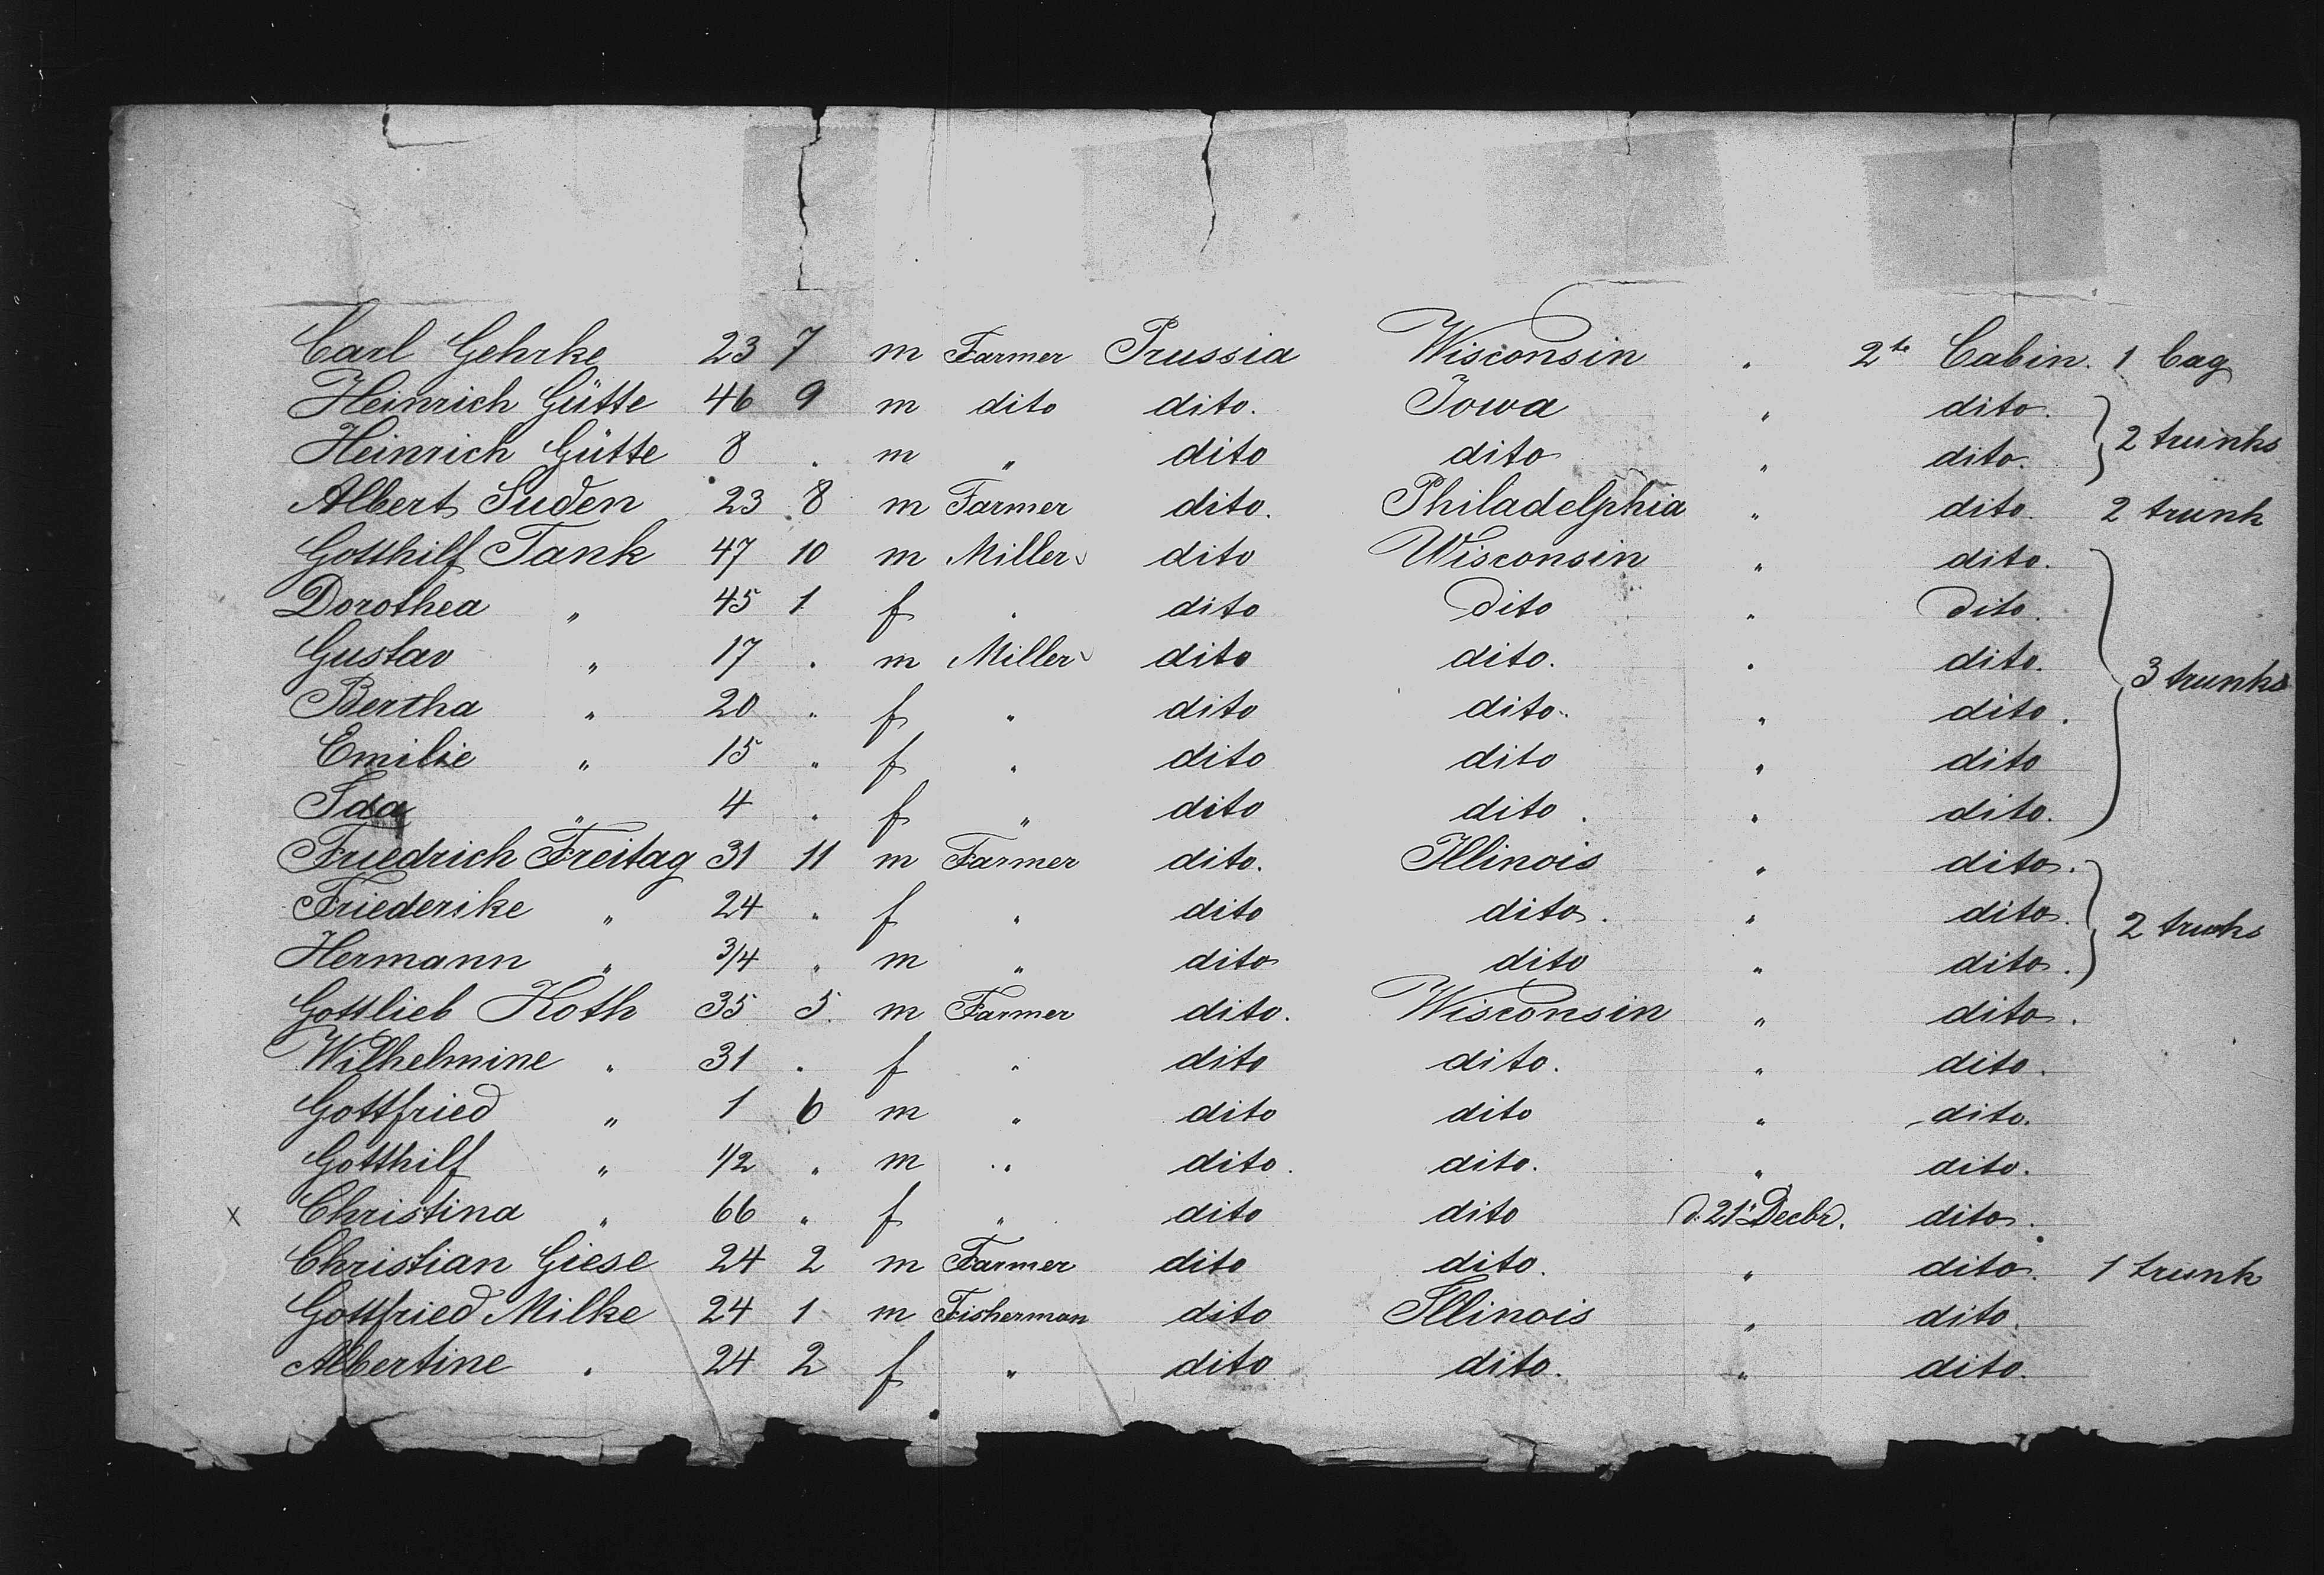 Carl Gehrke 23 7 m Farmer Prussia Wisconsin " 2te Cabin. 1 bag
Heinrich Gütte 46 9 m dito dito. Iowa " dito. 2 trunks
Heinrich Gütte 8 . m " dito dito " dito.
Albert Suden 23 8 m Farmer dito. Philadelphia " dito 2 trunk
Gotthilf Tank 47 10 m Miller dito Wisconsin " dito. 3 trunks
Dorothea " 45 1 f " dito dito " dito.
Gustav " 17 . m Miller dito dito. " dito.
Bertha " 20 " f " dito dito. " dito.
Emilie " 15 " f " dito dito " dito
Ida " 4 " f " dito dito. " dito.
Friedrich Freitag 31 11 m Farmer dito. Illinois " dito. 2 trunks
Friederike " 24 " f " dito dito. " dito.
Hermann " 3/4 " m " dito dito " dito.
Gottlieb Koth 35 5 m Farmer dito. Wisconsin " dito.
Wilhelmine " 31 . f " dito dito. " dito.
Gottfried " 1 6 m " dito dito " dito.
Gotthilf " 1/2 " m " dito. dito. " dito.
x Christina " 66 " f " dito dito d. 21t Decbr. dito.
Christian Giese 24 2 m Farmer dito dito. " dito. 1 trunk
Gottfried Milke 24 1 m Fisherman dito Illinois " dito.
Albertine " 24 2 f " dito dito. " dito.